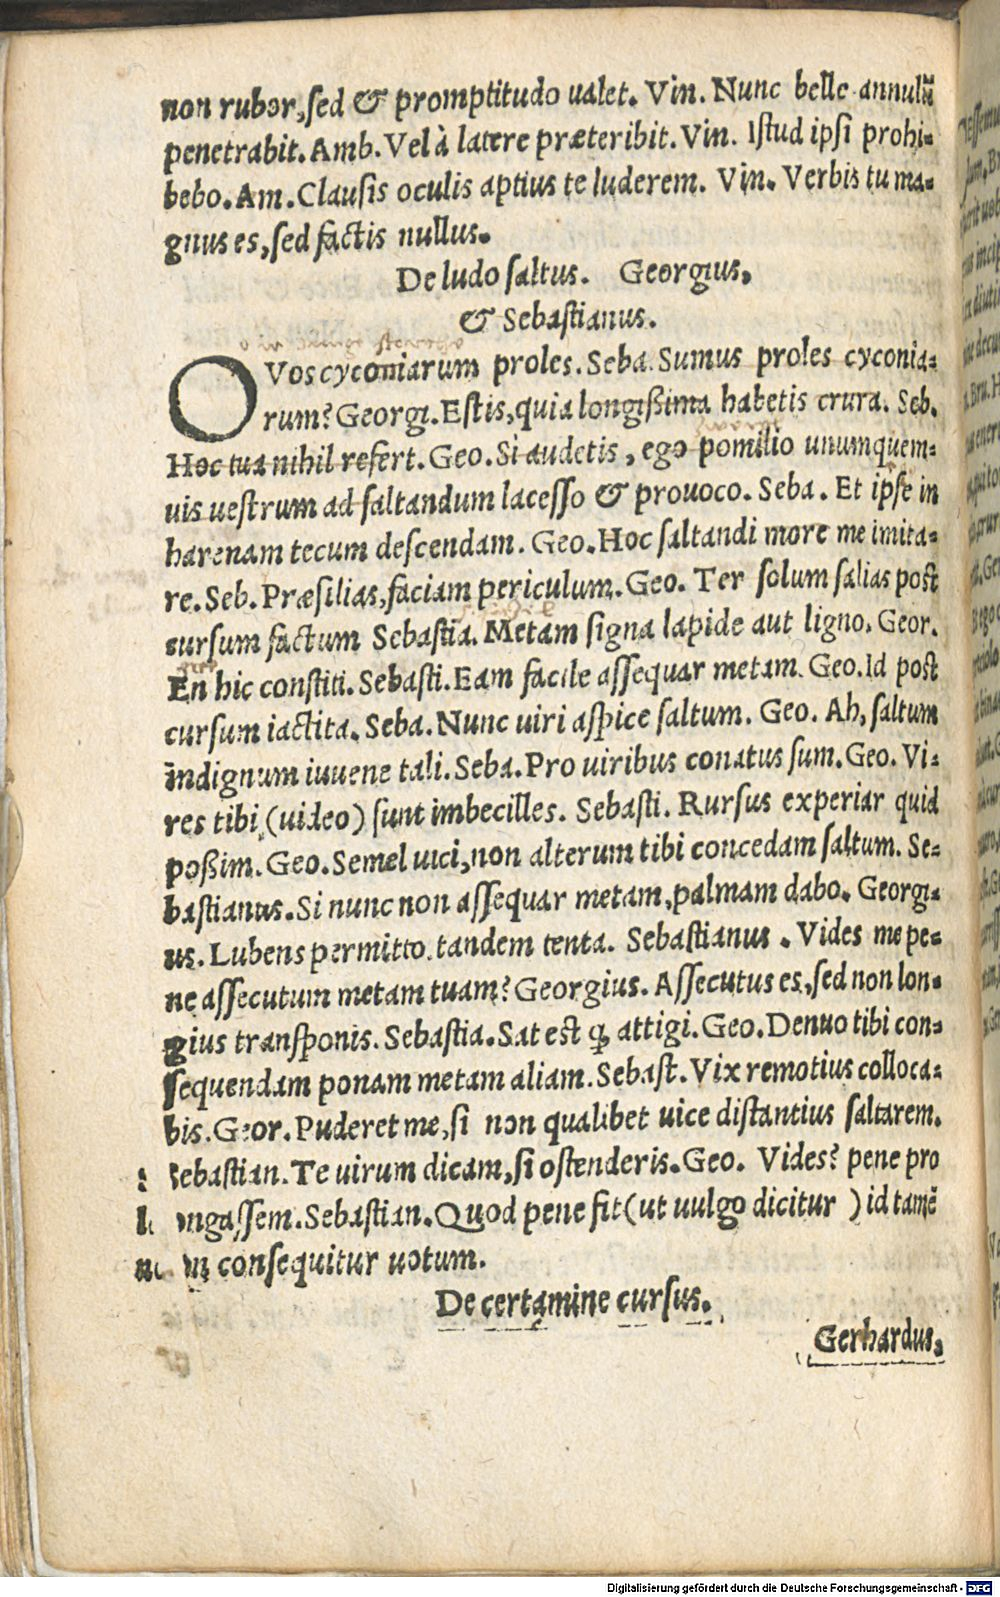 non rubor, sed & promptitudo ualet. Vin. Nunc belle annulū
penetrabit. Amb. Vel à latere præteribit. Vin. Istud ipsi prohi-
bebo. Am. Clausis oculis aptius te luderem. Vin. Verbis tu ma-
gnus es, sed factis nullus.
De ludo saltus. Georgius,
& Sebastianus.
O Vos cyconiarum proles. Seba. Sumus proles cyconia-
rum? Georgi. Estis, quia longißima habetis crura. Seb.
Hoc tua nihil refert. Geo. Si audetis, ego pomilio unumquem-
uis uestrum ad saltandum lacesso & prouoco. Seba. Et ipse in
harenam tecum descendam. Geo. Hoc saltandi more me imita-
re. Seb. Præsilias, faciam periculum. Geo. Ter solum salias post
cursum factum Sebastia. Metam signa lapide aut ligno. Geor.
En hic constiti. Sebasti. Eam facile assequar metam. Geo. Id post
cursum iactita. Seba. Nunc uiri aspice saltum. Geo. Ah, saltum
indignum iuuene tali. Seba. Pro uiribus conatus sum. Geo. Vi-
res tibi (uideo) sunt imbecilles. Sebasti. Rursus experiar quid
poßim. Geo. Semel uici, non alterum tibi concedam saltum. Se-
bastianus. Si nunc non assequar metam, palmam dabo. Georgi-
us. Lubens permitto, tandem tenta. Sebastianus. Vides me pe-
ne assecutum metam tuam? Georgius. Assecutus es, sed non lon-
gius transponis. Sebastia. Sat est ꝙ attigi. Geo. Denuo tibi con-
sequendam ponam metam aliam. Sebast. Vix remotius colloca-
bis. Geor. Puderet me, si non qualibet uice distantius saltarem.
Sebastian. Te uirum dicam, si ostenderis. Geo. Vides? pene pro
longassem. Sebastian. Quod pene fit (ut uulgo dicitur ) id tamē
non consequitur uotum.
De certamine cursus.
Gerhardus,
Digitalisierung gefördert durch die Deutsche Forschungsgemeinschaft - DFG